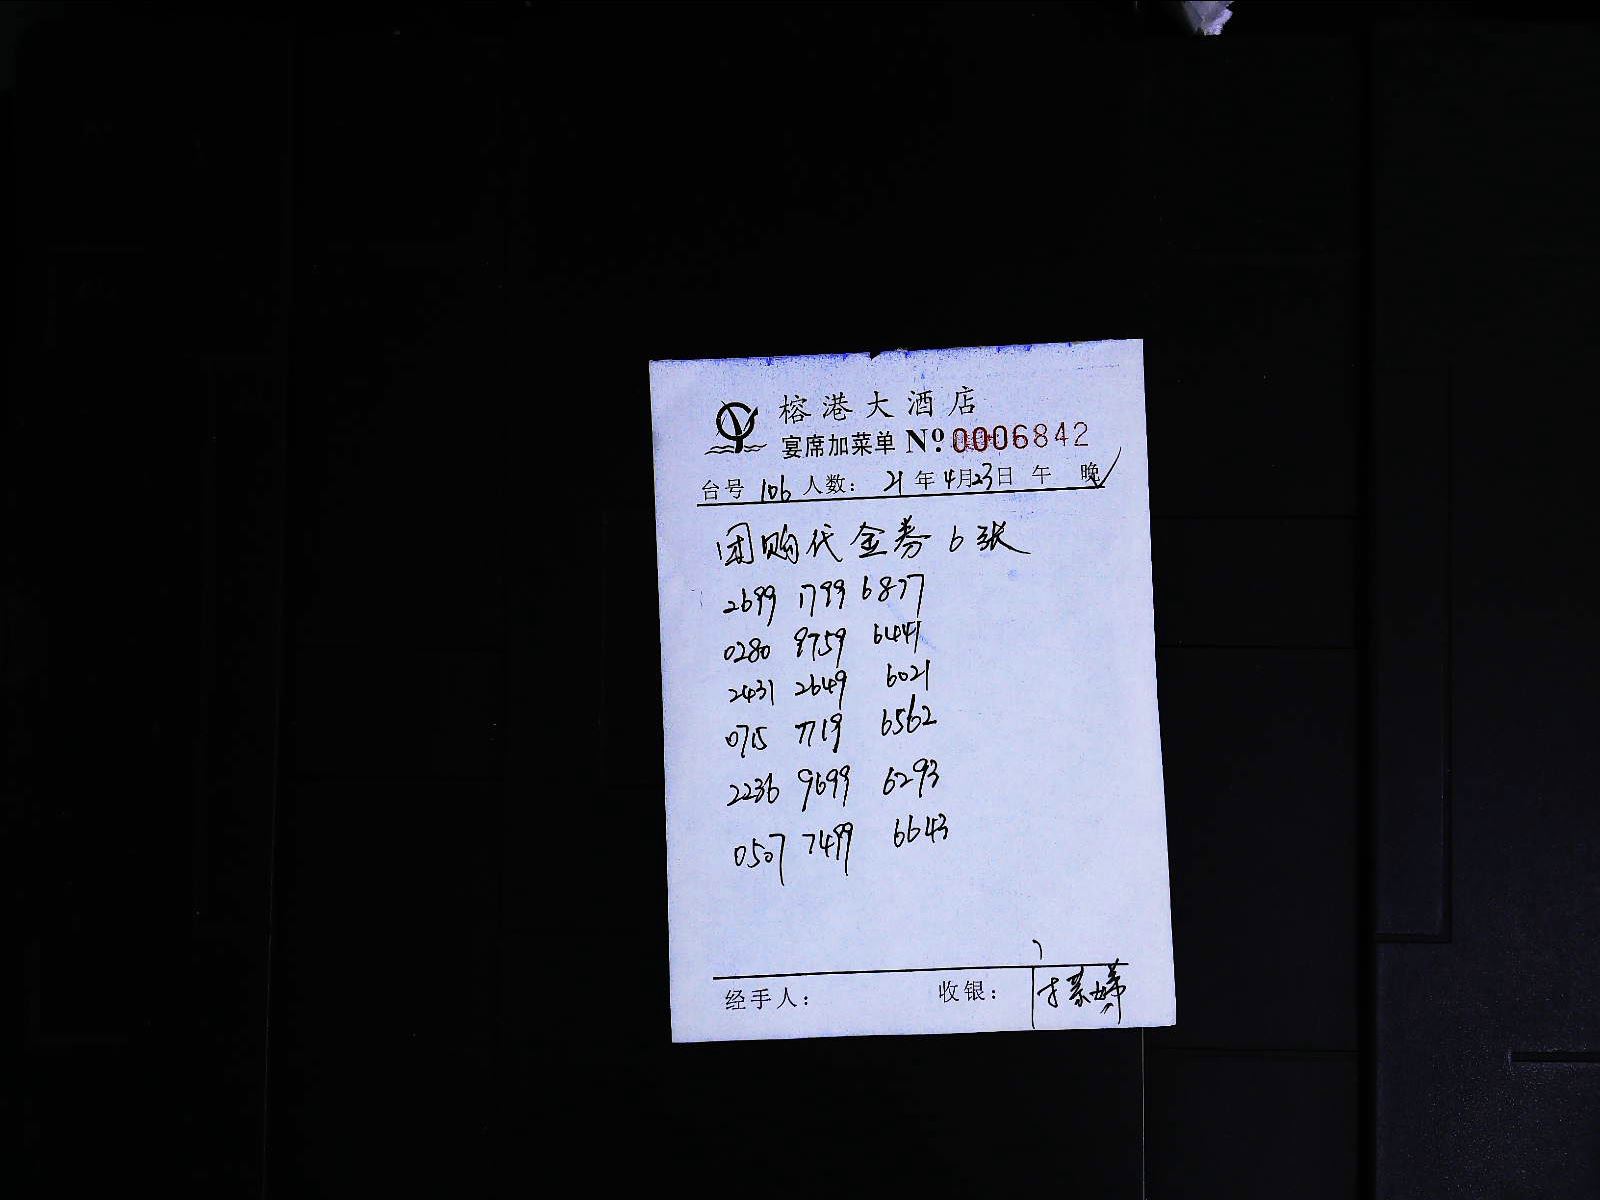 榕港大酒店
宴席加菜单 Nº 0006842
台号 106 人数： 21年4月23日 午 晚✓
团购代金券6张
2699 1799 6877
0280 9759 6441
2431 2649 6021
0715 7719 6562
2236 9699 6293
0507 7499 6643
经手人： 收银：